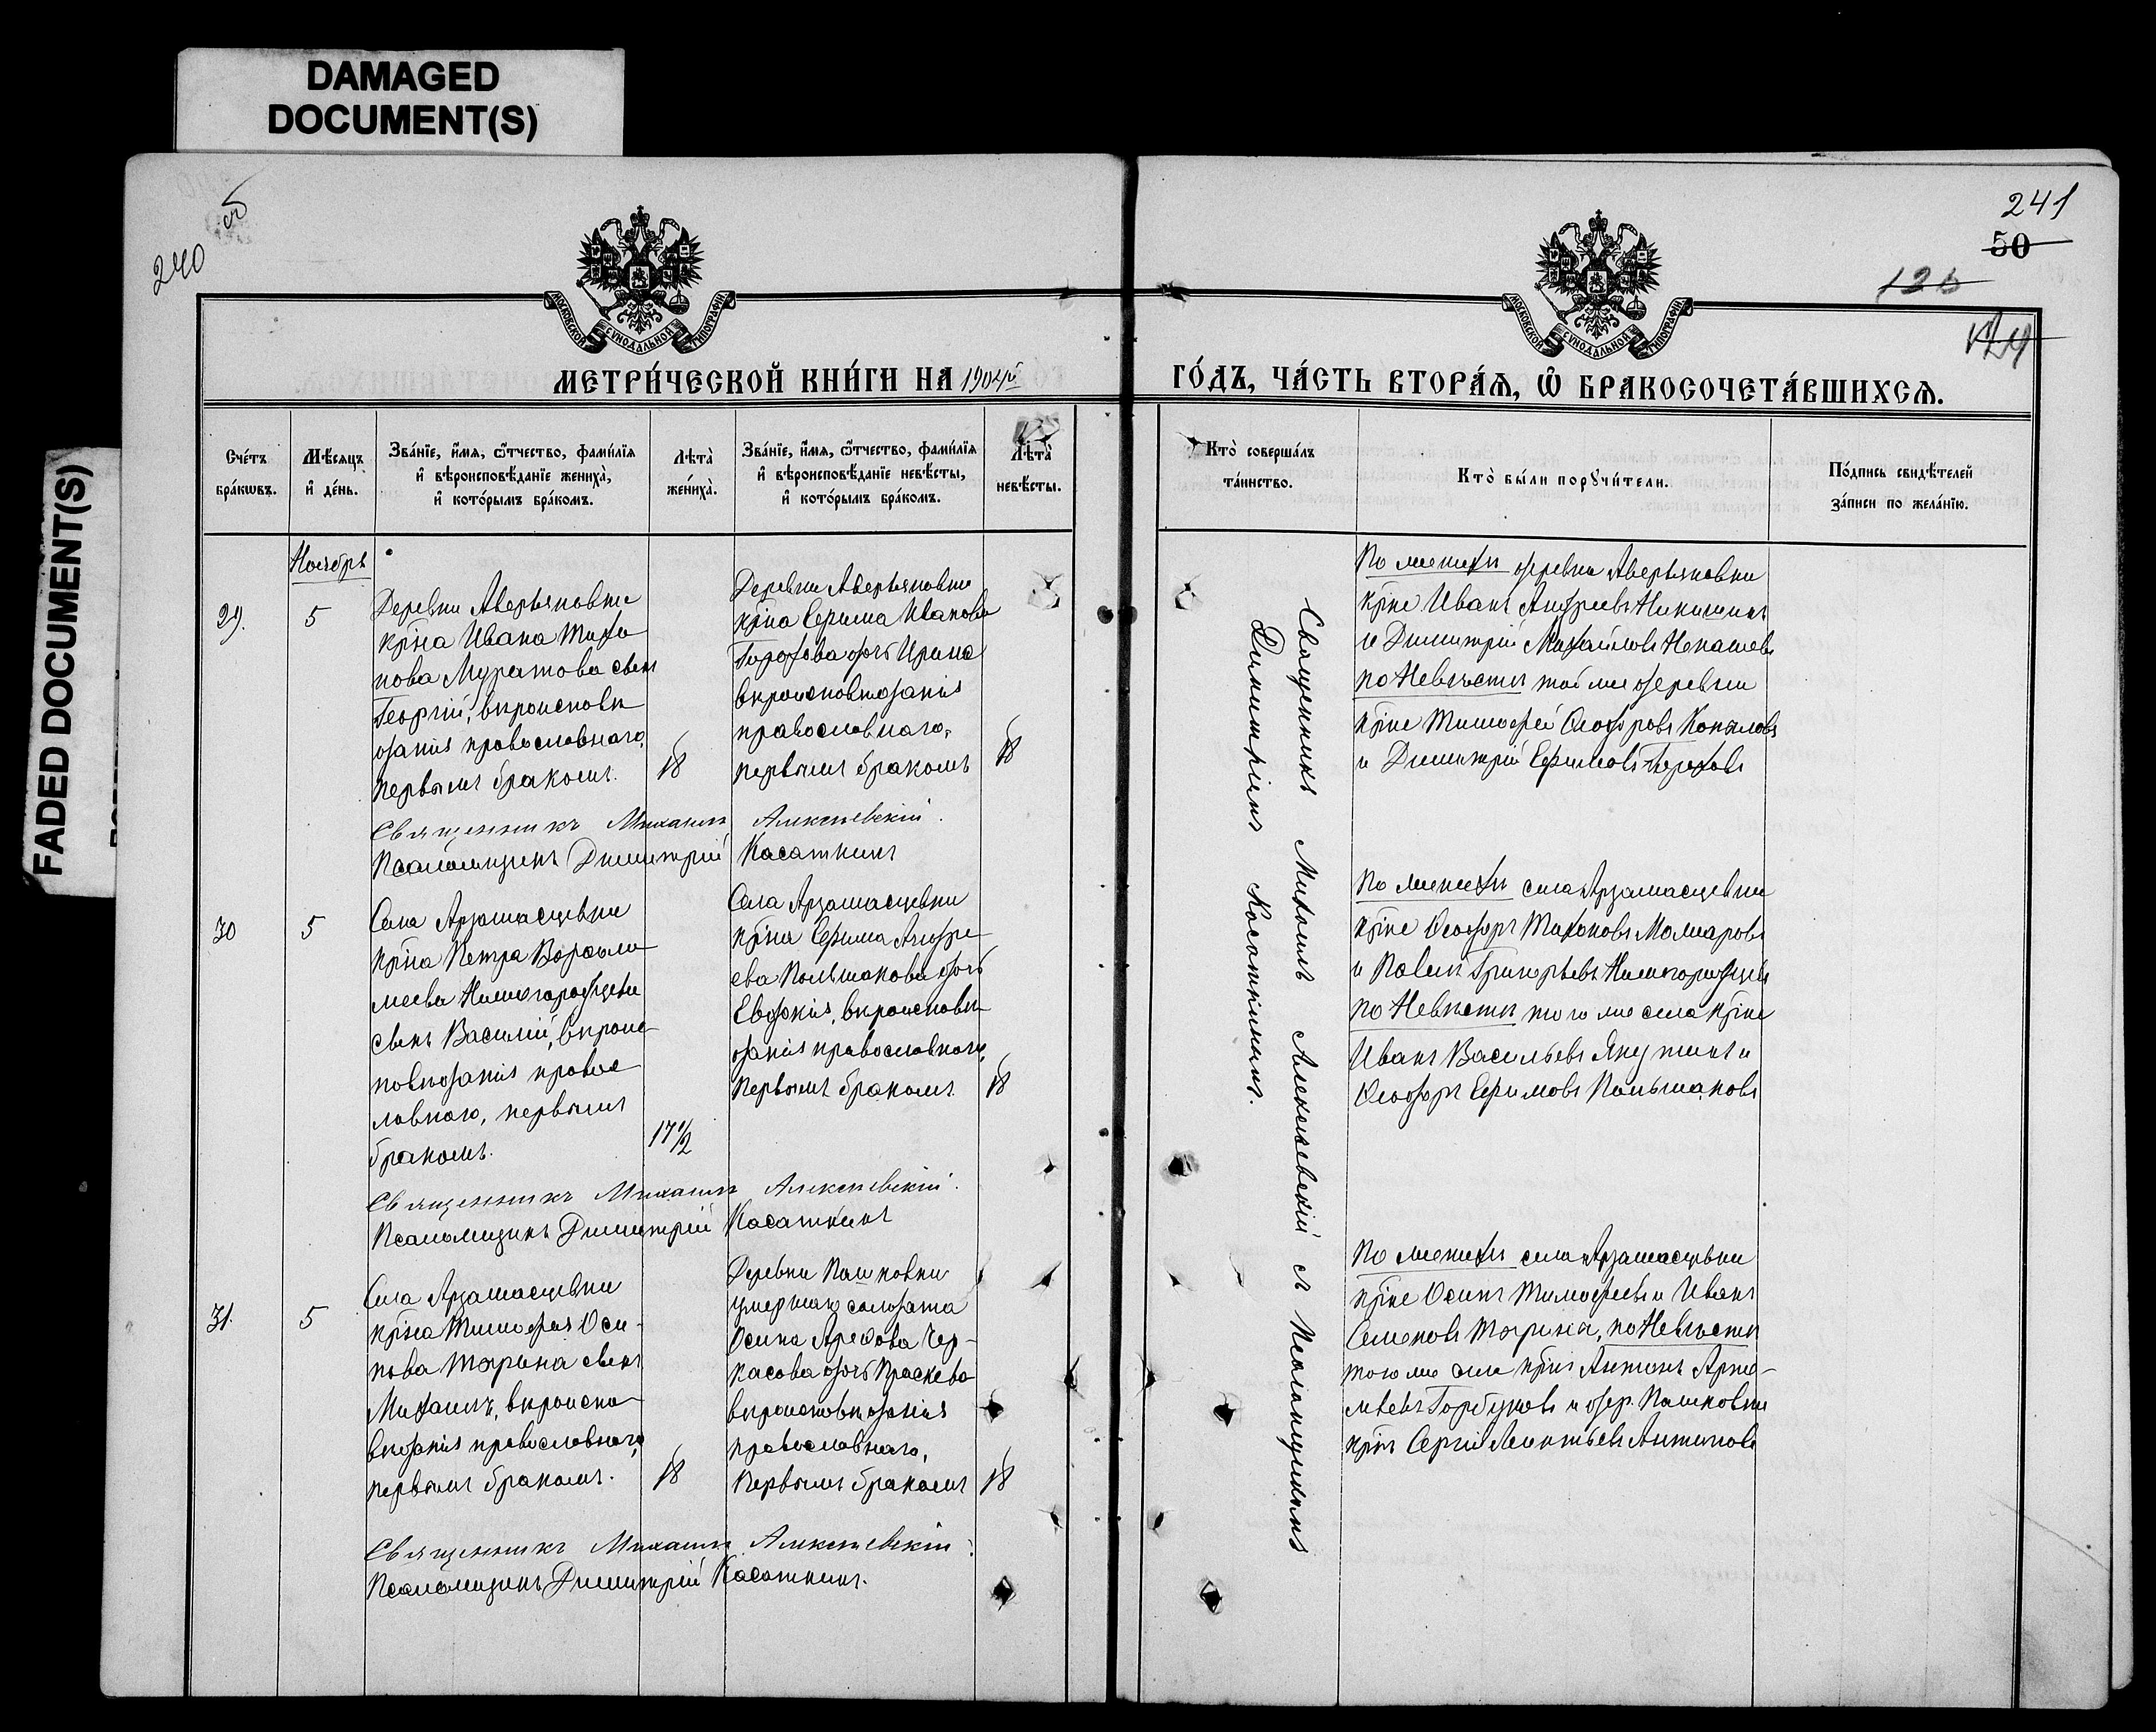 DAMAGED
DOCUMENT(S)
FADED DOCUMENT(S)
240
241
50
МОСКОВСКОЙ СѴНОДАЛЬНОЙ ТИПОГРАФІИ
МОСКОВСКОЙ СѴНОДАЛЬНОЙ ТИПОГРАФІИ
МЕТРИ́ЧЕСКОЙ КНИ́ГИ НА 1904й
ГО́ДЪ, ЧА́СТЬ ВТОРА́Ѧ, Ѽ БРАКОСОЧЕТА́ВШИХСѦ.
Сче́тъ
бра́кωвъ.
Мѣ́сяцъ
и҆ де́нь.
Зва́нїе, и҆́мѧ, ѻ҆́тчество, фами́лїѧ
и҆ вѣроисповѣ́данїе жениха̀,
и҆ кото́рымъ бра́комъ.
Лѣ́та̀
жениха̀.
Зва́нїе, и҆́мѧ, ѻ҆́тчество, фами́лїѧ
и҆ вѣроисповѣ́данїе невѣ́сты,
и҆ кото́рымъ бра́комъ.
Лѣ́та̀
невѣ́сты.
Кто̀ соверша́лъ
та́инство.
Кто̀ бы́ли порꙋчи́тели.
По́дпись свидѣ́телей
за́писи по жела́нїю.
Ноябрь
29.
5
Деревни Аверьяновки
крна Ивана Тихо
нова Муратова сынъ
Георгій, вѣроисповѣ
данія православнаго,
первымъ бракомъ.
18
Деревни Аверьяновки
крна Ефима Иванова
Горохова дочь Ирина
вѣроисповѣданія
православнаго,
первымъ бракомъ
18
По женихѣ деревни Аверьяновки
крне Иванъ Андреевъ Никишинъ
и Димитрій Михайловъ Ненашевъ
по Невѣстѣ той же деревни
крне Тимофей Ѳеодоровъ Копыловъ
и Димитрій Ефимовъ Гороховъ
Священникъ Михаилъ Алексѣевскій.
Псаломщикъ Димитрій Касаткинъ
30
5
Села Арзамасцевки
крна Петра Варѳоло
меева Нижегородцева
сынъ Василій, вѣроис
повѣданія правос
лавнаго, первымъ
бракомъ.
17 1/2
Села Арзамасцевки
крна Ефима Андре
ева Польшакова дочь
Евдокія, вѣроисповѣ
данія православнаго,
первымъ бракомъ
18
По женихѣ села Арзамасцевки
крне Ѳеодоръ Тихоновъ
и Павелъ Григорьевъ Нижегородцевъ
по Невѣстѣ того же села крне
Иванъ Васильевъ Якушинъ и
Ѳеодоръ Ефимовъ Польшаковъ
Священникъ Михаилъ Алексѣевскій.
Псаломщикъ Димитрій Касаткинъ
31.
5
Села Арзамасцевки
крна Тимофея Оси-
пова Тярина сынъ
Михаилъ, вѣроиспо
вѣданія православнаго,
первымъ бракомъ.
18
Деревни Пашковки
умершаго солдата
Осипа Чер-
касова дочь Праскева
вѣроисповѣданія
православнаго,
первымъ бракомъ
18
По женихѣ села Арзамасцевки
крне Осипъ Тимофеевъ и Иванъ
Семеновъ Тярины, по Невѣстѣ
того же села крнъ Антонъ Арте-
мьевъ Горбуновъ и дер. Пашковки
крнъ Сергій Леонтьевъ Антиповъ
Священникъ Михаилъ Алексѣевскій.
Псаломщикъ Димитрій Касаткинъ.
Священникъ Михаилъ Алексѣевскій съ Псаломщикомъ
Димитріемъ Касаткинымъ.